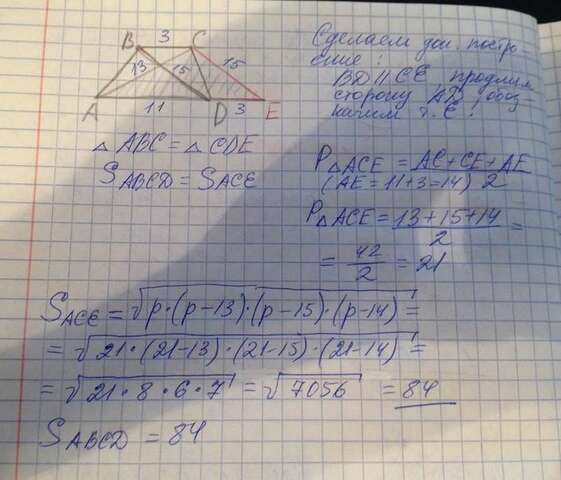 B 3 C
13 15 15
A 11 D 3 E
△ABC = △CDE
S ABCD = S ACE
Сделаем доп. постро-
ение:
BD || CE, продлим
сторону AD, обоз-
начим т. E.
P△ACE = AC+CE+AE / 2
(AE = 11+3=14)
P△ACE = 13+15+14 / 2 =
= 42/2 = 21
S ACE = √p·(p-13)·(p-15)·(p-14) =
= √21·(21-13)·(21-15)·(21-14) =
= √21·8·6·7 = √7056 = 84
S ABCD = 84